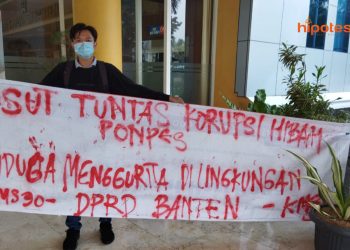 hipotes
USUT TUNTAS KORUPSI HIBAH
PONPES
DIDUGA MENGGURITA DI LINGKUNGAN
DPRD BANTEN -